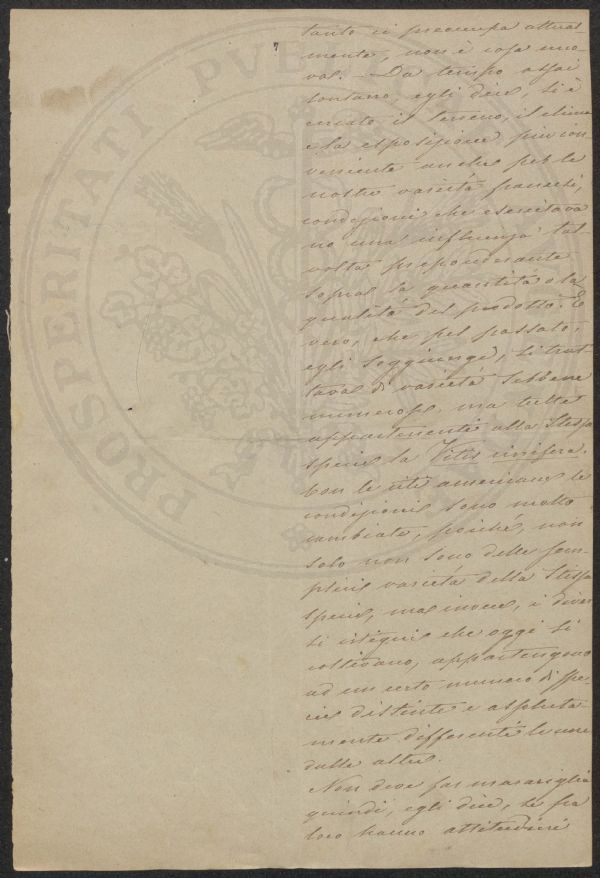 tanto ci preoccupa attual-
mente, non è cosa nuo-
va. — Da tempo assai
lontano, egli dice, si è
cercato il terreno, il clima
e la esposizione più con-
veniente anche per le
nostre varietà francesi,
condizioni che esercitava-
no una influenza tal-
volta preponderante
sopra la quantità e la
qualità del prodotto. È
vero, che pel passato,
egli soggiunge, si trat-
tava di varietà sebbene
numerose, ma tutte
appartenenti alla stessa
specie la Vitis vinifera.
Con le viti americane le
condizioni sono molto
cambiate, poichè, non
solo non sono delle sem-
plici varietà della stessa
specie, ma invece, i diver-
si vitigni che oggi si
coltivano, appartengono
ad un certo numero di spe-
cie distinte e assoluta-
mente differenti le une
dalle altre.
Non deve far maraviglia
quindi, egli dice, se fra
loro hanno attitudini
PROSPERITATI PVBL